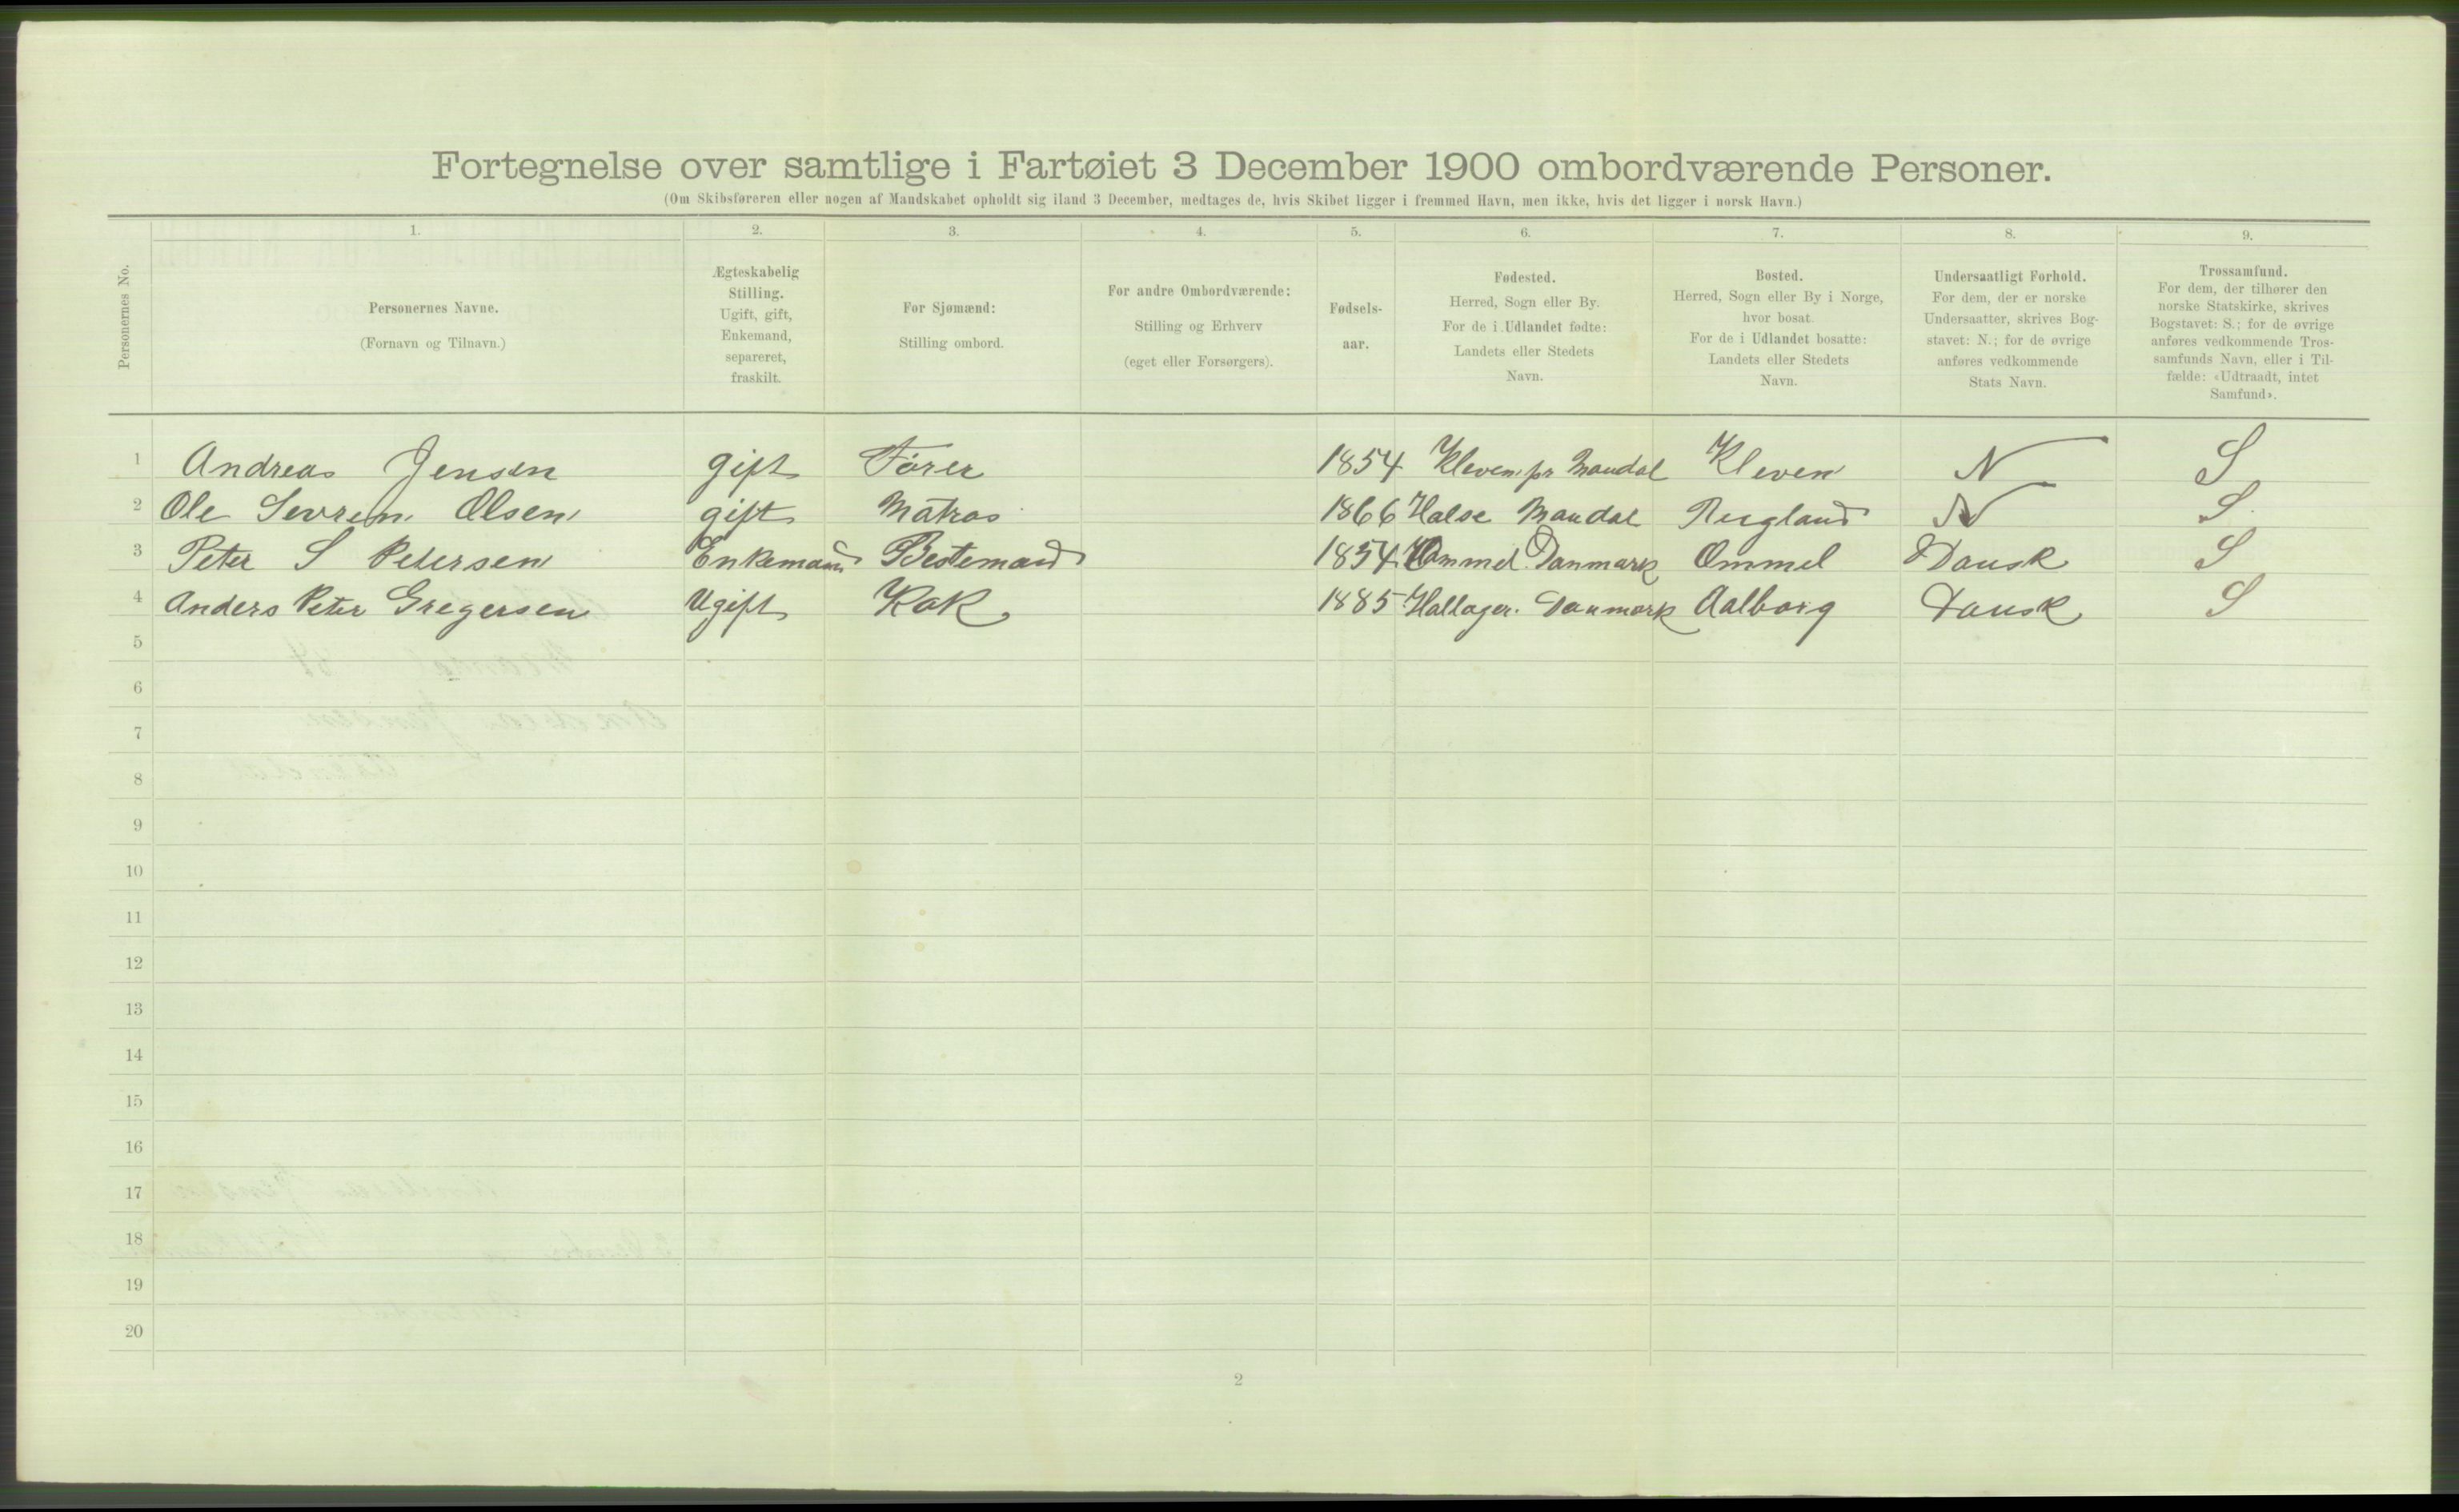 Fortegnelse over samtlige i Fartøiet 3 December 1900 ombordværende Personer.
(Om Skibsføreren eller nogen af Mandskabet opholdt sig iland 3 December, medtages de, hvis Skibet ligger i fremmed Havn, men ikke, hvis det ligger i norsk Havn.)
Personernes No.
1.
Personernes Navne.
(Fornavn og Tilnavn.)
2.
Ægteskabelig
Stilling.
Ugift, gift,
Enkemand,
separeret,
fraskilt.
3.
For Sjømænd:
Stilling ombord.
4.
For andre Ombordværende:
Stilling og Erhverv
(eget eller Forsørgers).
5.
Fødsels-
aar.
6.
Fødested.
Herred, Sogn eller By.
For de i Udlandet fødte:
Landets eller Stedets
Navn.
7.
Bosted.
Herred, Sogn eller By i Norge,
hvor bosat.
For de i Udlandet bosatte:
Landets eller Stedets
Navn.
8.
Undersaatligt Forhold.
For dem, der er norske
Undersaatter, skrives Bog-
stavet: N.; for de øvrige
anføres vedkommende
Stats Navn.
9.
Trossamfund.
For dem, der tilhører den
norske Statskirke, skrives
Bogstavet: S.; for de øvrige
anføres vedkommende Tros-
samfunds Navn, eller i Til-
fælde: «Udtraadt, intet
Samfund».
1 Andreas Jensen gift Fører 1854 Kleven pr Mandal Kleven N S
2 Ole Sevrin Olsen gift Matros 1866 Halse Mandal N S
3 Peter S Petersen Enkemand Bestemand 1854 Ommel Danmark Ommel Dansk S
4 Anders Peter Gregersen Ugift Kok 1885 Danmark Aalborg Dansk S
5
6
7
8
9
10
11
12
13
14
15
16
17
18
19
20
2